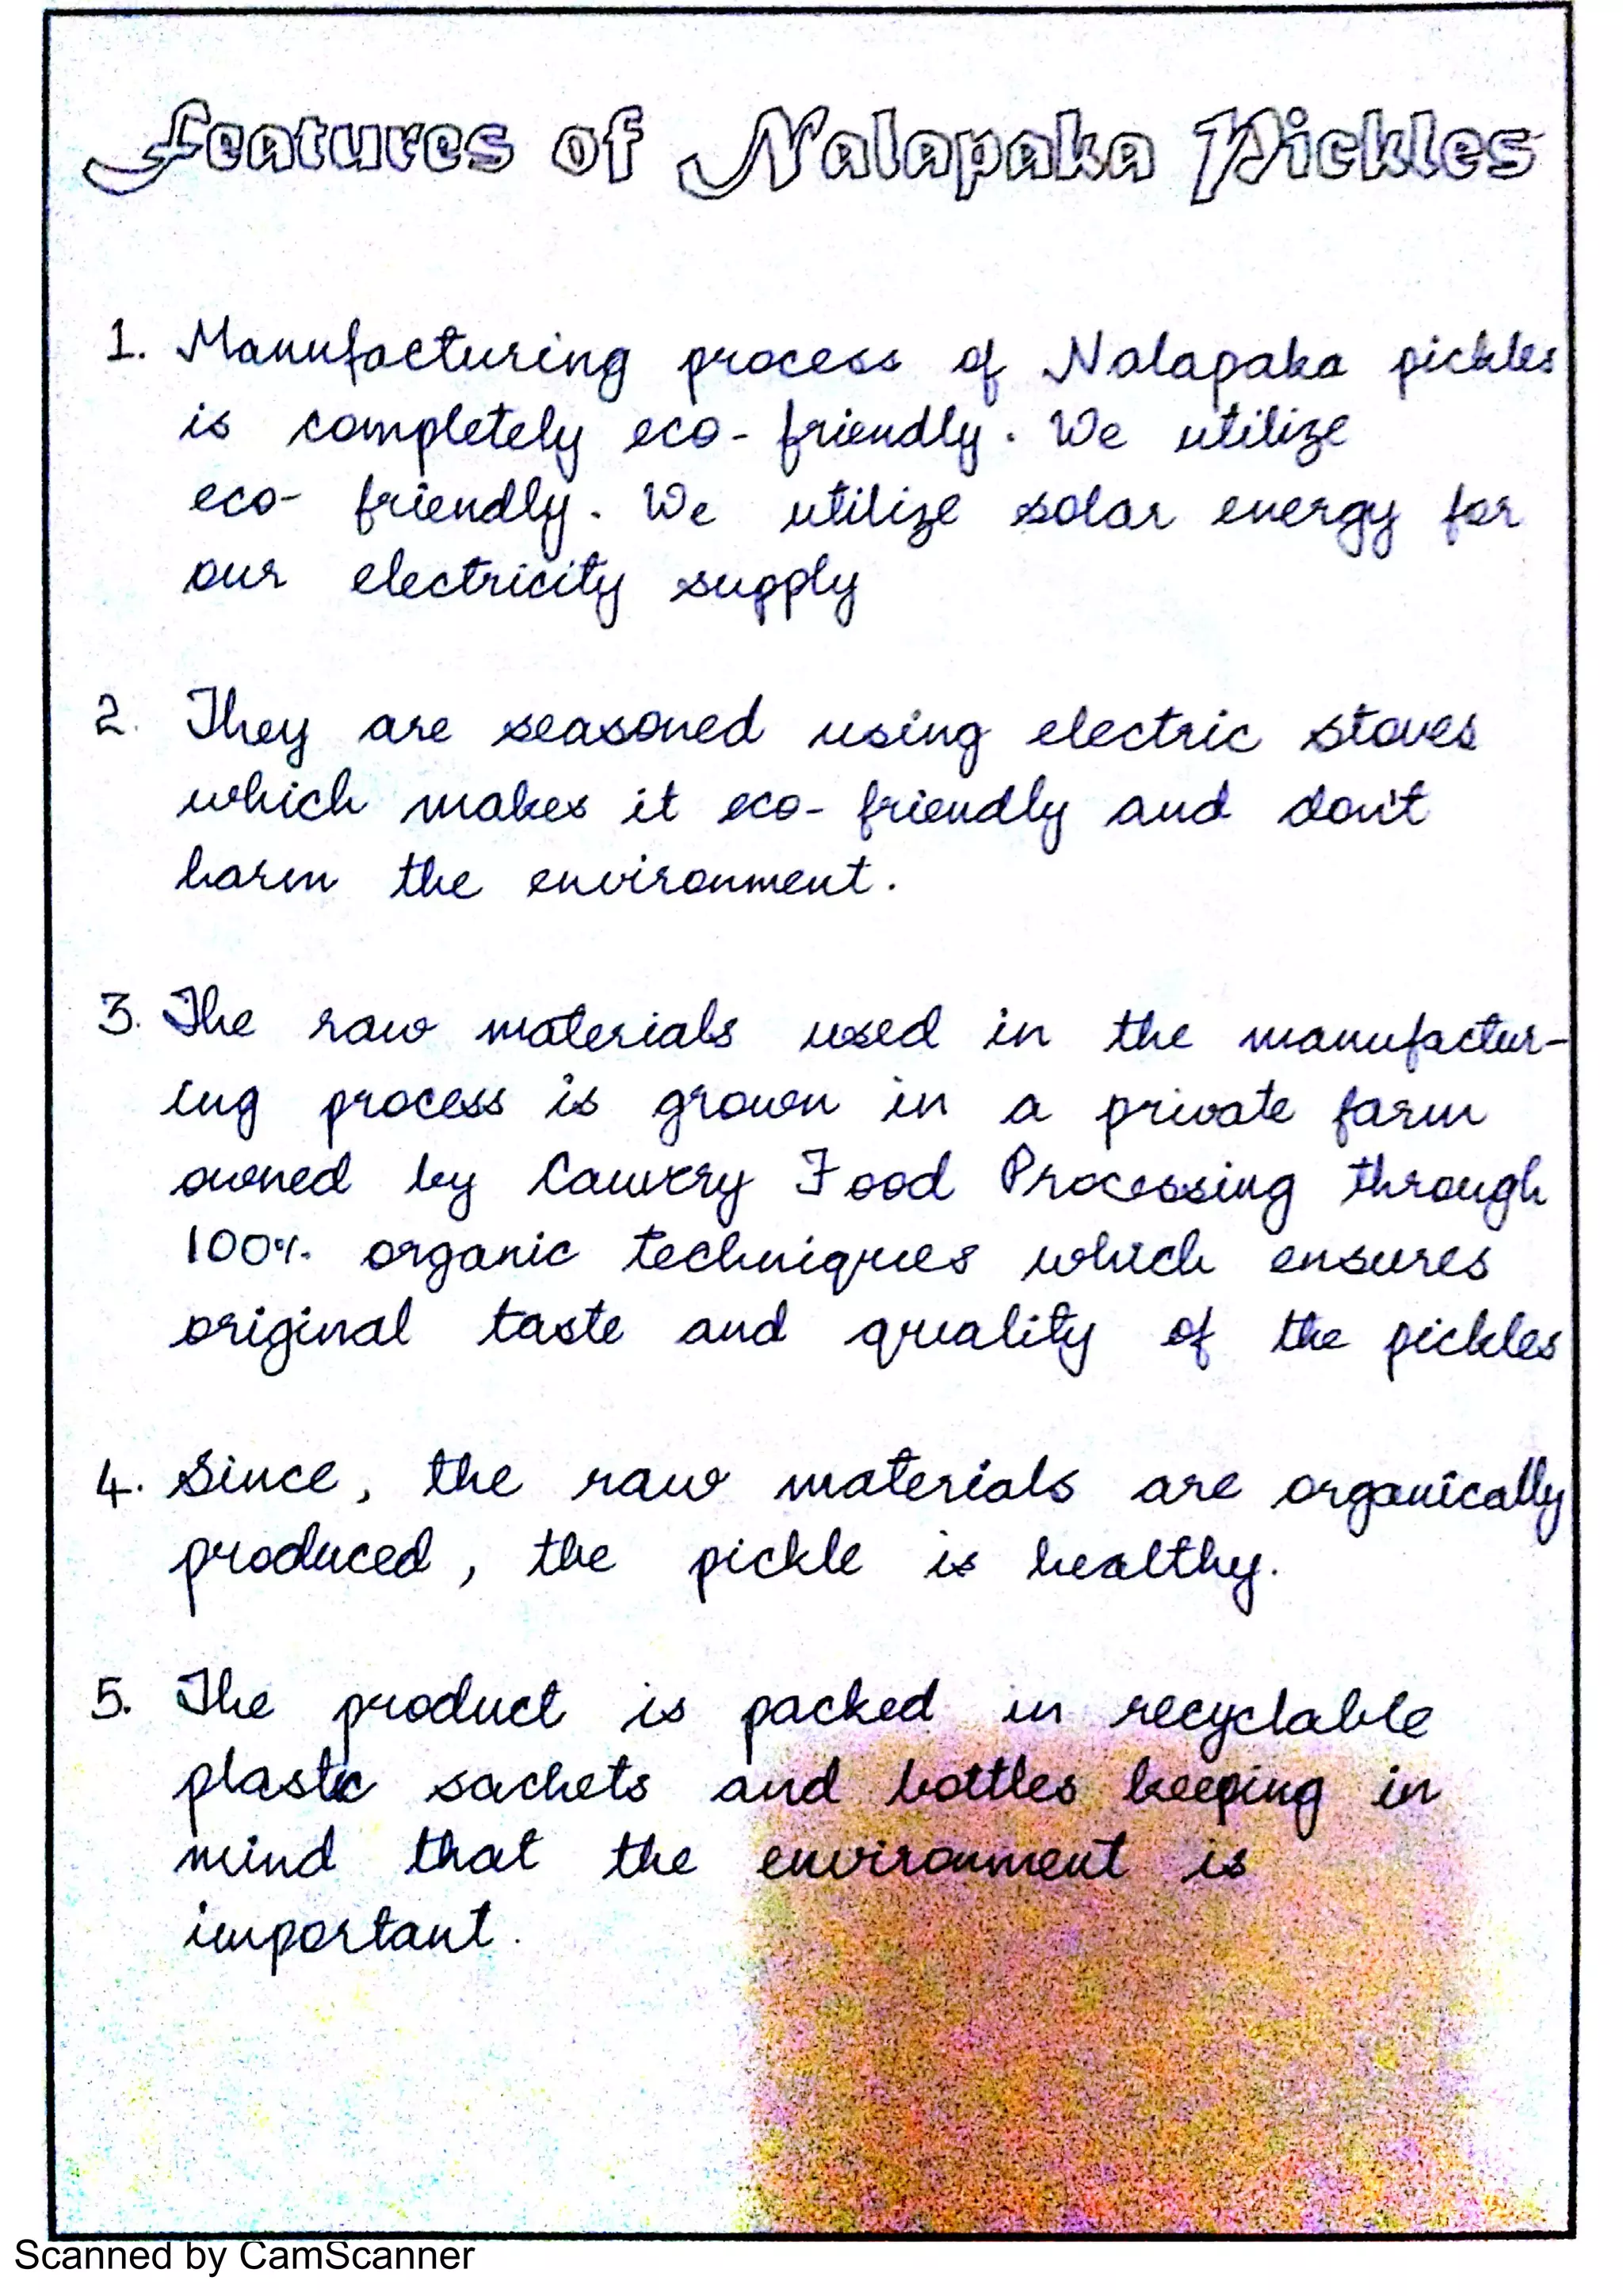 Features of Nalapaka Pickles
1. Manufacturing process of Nalapaka pickles
is completely eco- friendly. We utilize
eco- friendly. We utilize solar energy for
our electricity supply
2. They are seasoned using electric stoves
which makes it eco- friendly and don't
harm the environment.
3. The raw materials used in the manufactur-
ing process is grown in a private farm
owned by Cauvery Food Processing through
100% organic techniques which ensures
original taste and quality of the pickles
4. Since, the raw materials are organically
produced, the pickle is healthy.
5. The product is packed in recyclable
plastic sachets and bottles keeping in
mind that the environment is
important.
Scanned by CamScanner